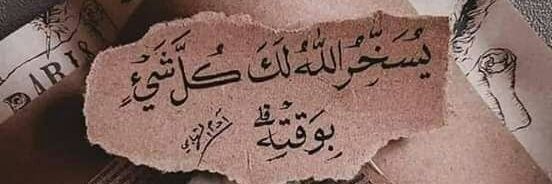 يُسَخِّرُ اللَّهُ لَكَ كُلَّ شَيْءٍ
بِوَقْتِهِ
PARIS